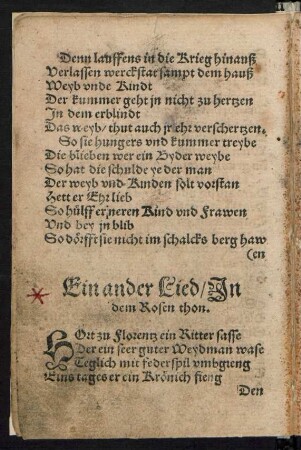 Denn lauffens in die Krieg hinauß
Verlassen werckstat sampt dem hauß
Weyb vnde Kindt
Der kummer geht jn nicht zu hertzen
In dem erblindt
Das weyb/ thut auch jr ehr verschertzen.
So sie hungers vnd kummer treybe
Die blieben wer ein Byder weybe
So hat die schulde yeder man
Der weyb vnd Kinden solt vorstan
Hett er Ehr lieb
So hülff er, neren Kind vnd Frawen
Vnd bey jn blib
So dörfft sie nicht im schalcks berg haw
(en
Ein ander Lied/ In
dem Rosen thon.
HOrt zu Florentz ein Ritter sasse
Der ein seer guter Weydman wase
Teglich mit federspil vmbgieng
Eins tages er ein Krönich fieng
Den